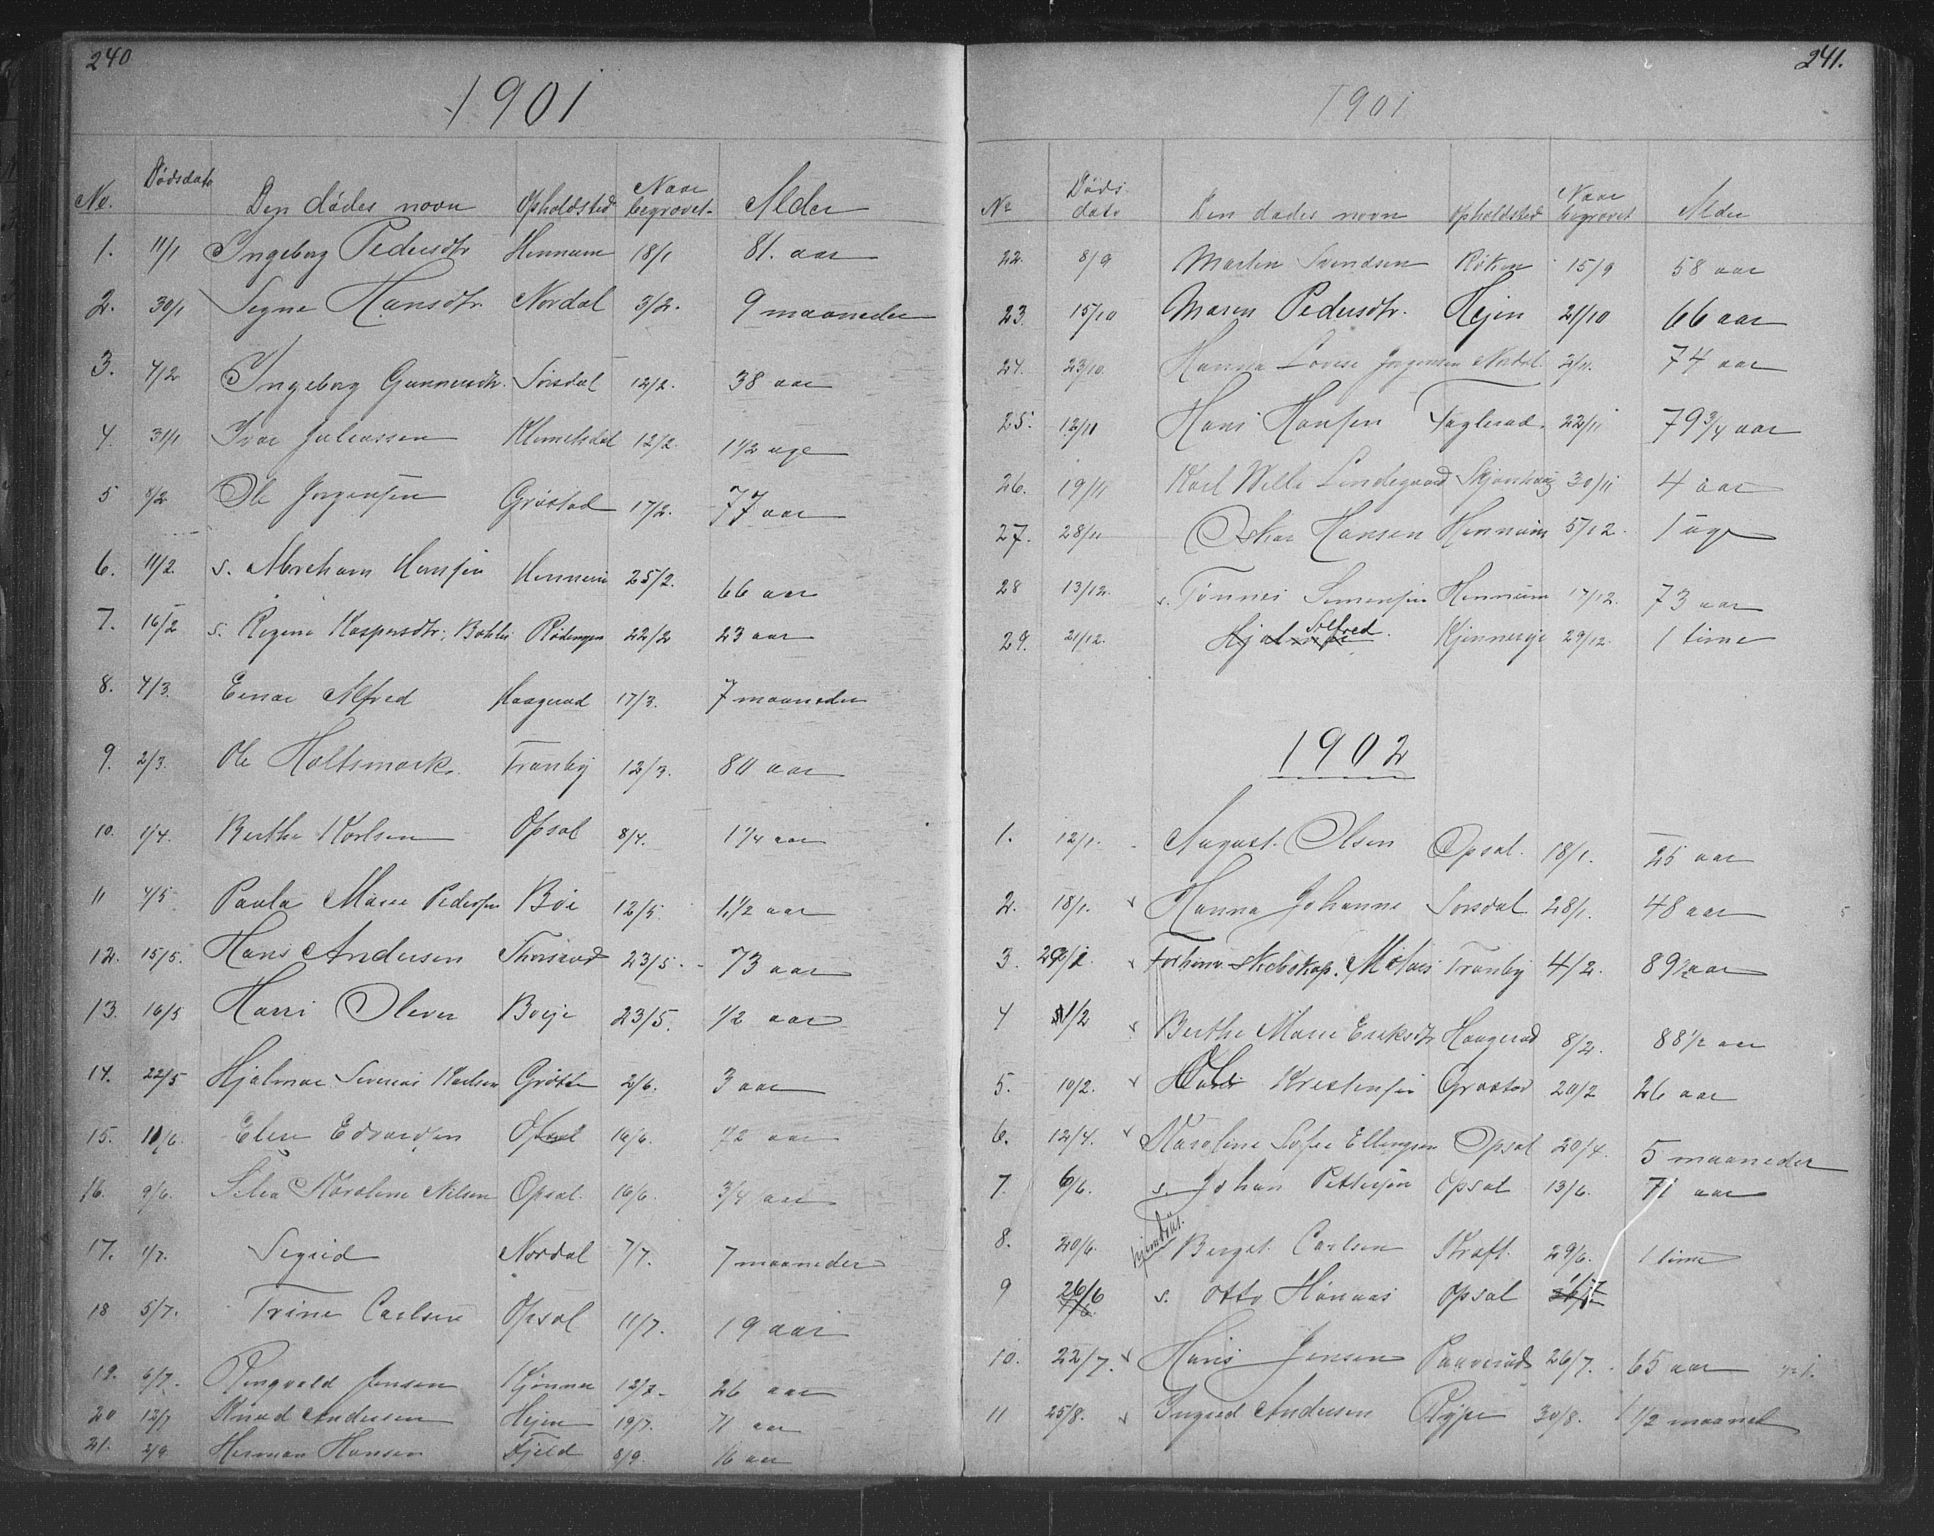 240
1901
No. Dødsdato Den dødes navn Opholdsted Naar begravet. Alder
1. 11/1 Ingeborg Pedersdtr Hennum 18/1 81. aar
2. 30/1 Signe Hansdtr. Nordal 3/2. 9 maaneder
3. 4/2 Ingeborg Gunnersdtr. Sørsdal 12/2. 38 aar
4. 31/1 Ivar Juliussen Klemetsdal 12/2. 1 1/2 uge
5 8/2 Ole Jørgensen Grøstad 17/2. 77 aar
6. 11/2. s. Abraham Hansen Hennum 25/2. 66 aar
7. 16/2 s. Regine Kaspersdtr. Rødingen 22/2 23 aar
8. 4/3. Einar Alfred Haagerud 17/3. 7 maaneder
9. 2/3. Ole Holtsmark. Tranby 12/3. 80 aar
10. 1/4. Berthe Karlsen Opsal 8/4. 1 1/4 aar
11 4/5 Paula Marie Pedersen Bøe 12/5. 1 1/2 aar
12. 15/5. Hans Andersen Thorsrud 23/5. 73 aar
13. 16/5 Harri Oliver Boije 23/5. 1/2 aar
14. 22/5 Hjalmar Severin Karlsen Grøtte 2/6. 3 aar
15. 11/6. Elen Edvardsen Opsal 16/6. 1/2 aar
16. 9/6. Karoline Nilsen Opsal. 16/6. 3/4 aar
17. 1/7. Sigrid Nordal 7/7. 7 maaneder
18 5/7. Trine Carlsen Opsal 11/7. 19 aar
19. 6/7. Ringvald Jensen Kjønnar 12/7. 26 aar
20 12/7 Knud Andersen Hejen 19/7. 71 aar
21. 2/9 Herman Hansen Fjeld 8/9. 16 aar
241.
1901
No Døds dato Den dødes navn Opholdsted Naar begravet Alder
22. 8/9 Martin Svendsen Røken 15/9 58 aar
23. 15/10 Maren Pedersdtr. Hejen 21/10 66 aar
24. 23/10. Hanna Lovise Jørgensen Nordal. 2/11. 74 aar
25. 12/11 Hans Hansen Faglerud. 22/11 79 3/4 aar
26. 19/11 Karl Wille Lindegaard Skjønhaug 30/11 4 aar
27. 28/11 Oskar Hansen Hennum 5/12. 1 uge
28 13/12. s. Tønnes Simensen Hennum 17/12. 73 aar
29. 21/12. Hjalmar Alfred. Kjønnerøje 29/12. 1 time
1902
1. 12/1. August Olsen Opsal. 18/1. 25 aar
2. 18/1. Hanna Johanne Sørsdal 28/1. 48 aar
3. 29/1. Moløus Tranby 4/2. 89 1/2 aar
4 1/2 Berthe Marie Eriksdtr Haagerud 8/2. 88 1/2 aar
5. 10/2. Ole Kristensen Grøstad 20/2 26 aar
6. 12/4. Karoline Sofie Ellingsen Opsal 20/4. 5 maaneder
7. 6/6. s. Johan Pettersen Opsal 13/6. 71 aar
8. 20/6. hjemdøbt. Berget Carlsen Kraft. 29/6. 1 time
9 26/6 s. Otto Hønaas Opsal
10. 22/7. Hans Jensen Paaverud 26/7. 65 aar
11 25/8. Ingrid Andersen Rype 30/8. 1 1/2 maaned